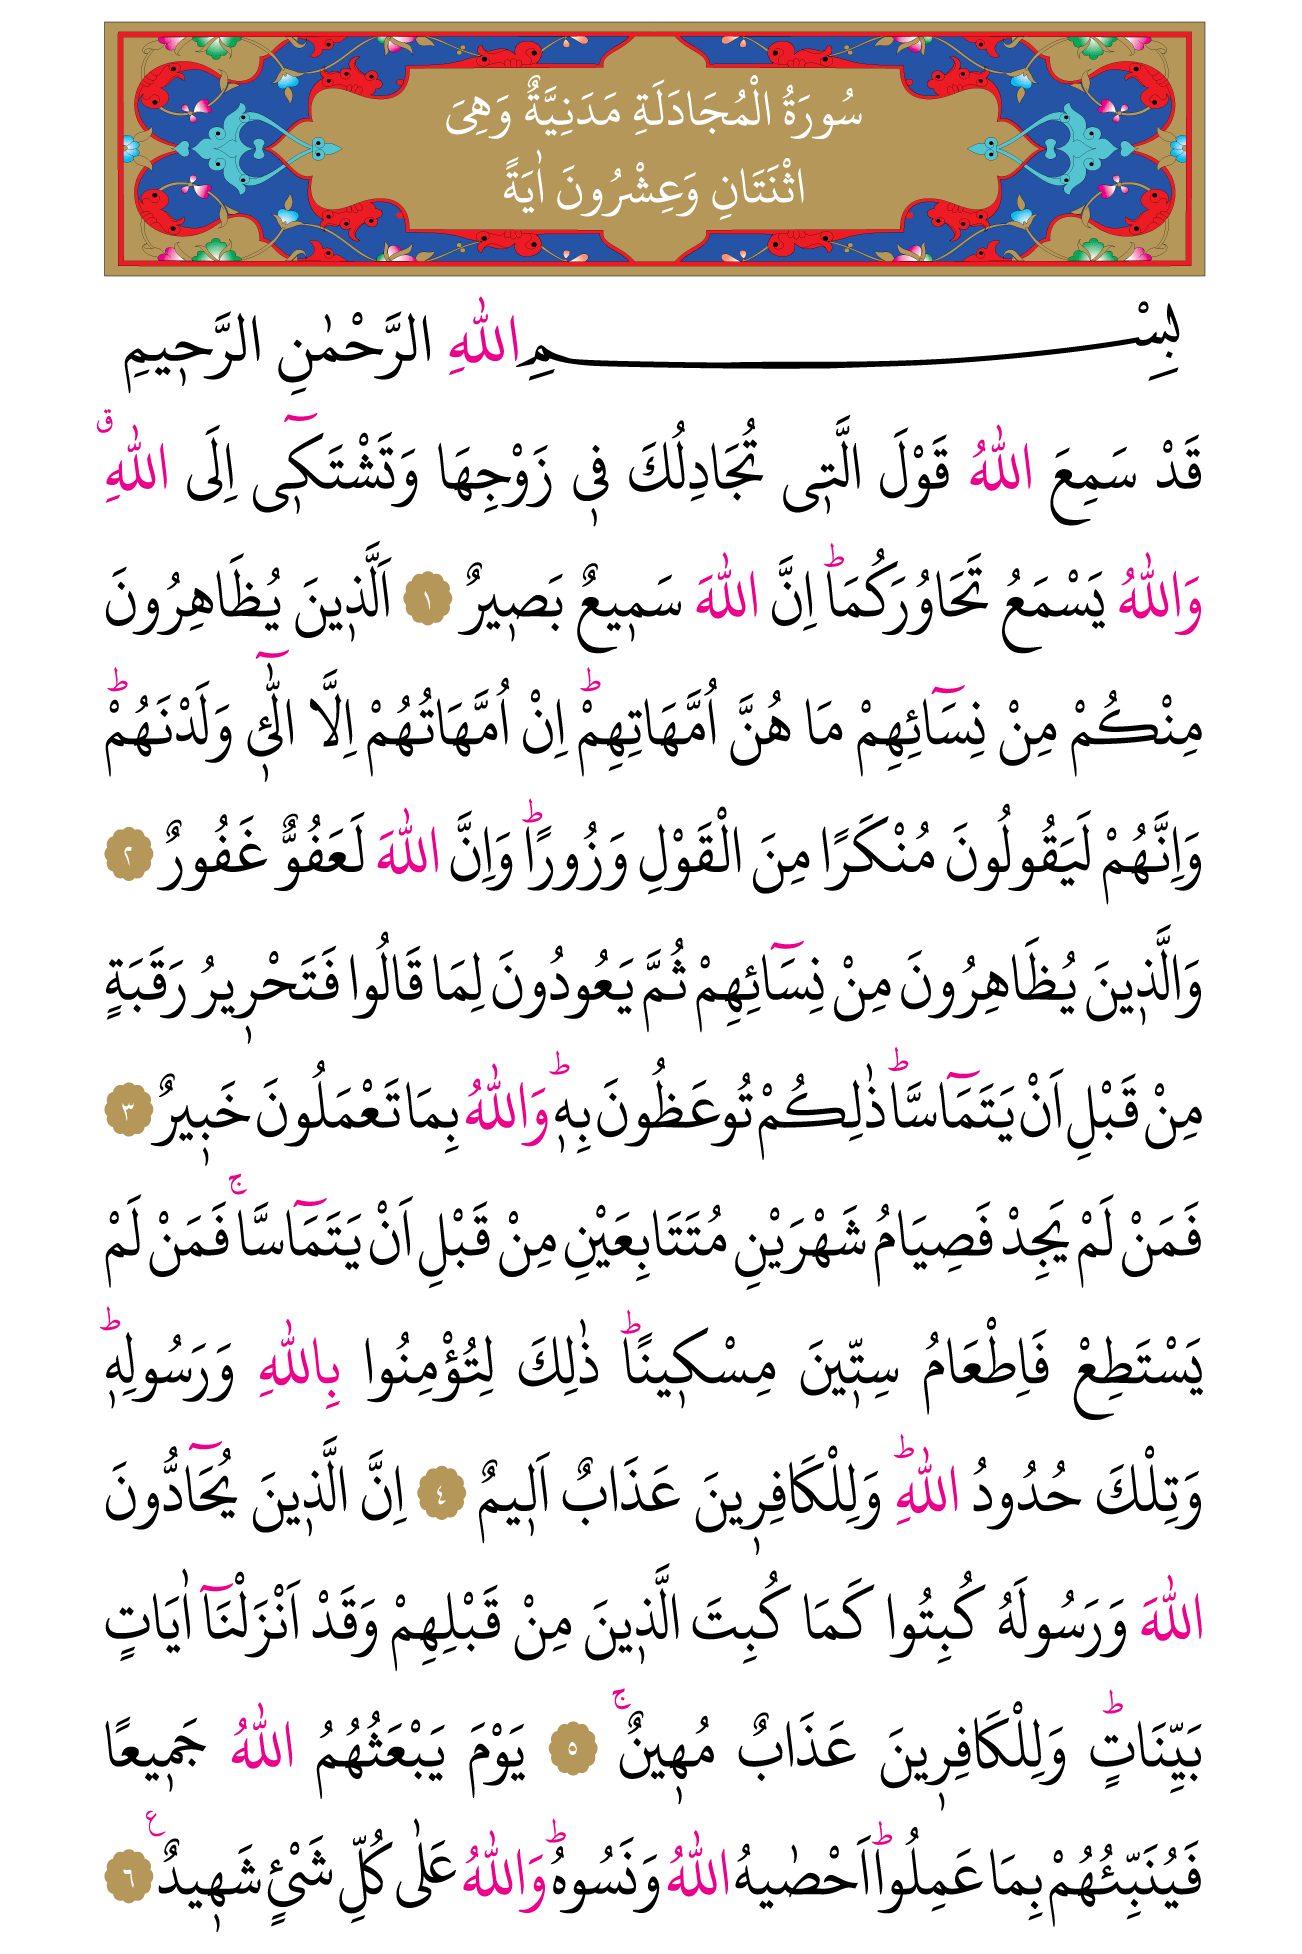 سُورَةُ الْمُجَادَلَةِ مَدَنِيَّةٌ وَهِىَ
اثْنَتَانِ وَعِشْرُونَ اٰيَةً
بِسْمِ اللّٰهِ الرَّحْمٰنِ الرَّح۪يمِ
قَدْ سَمِعَ اللّٰهُ قَوْلَ الَّت۪ى تُجَادِلُكَ ف۪ى زَوْجِهَا وَتَشْتَك۪ٓى اِلَى اللّٰهِۗ
وَاللّٰهُ يَسْمَعُ تَحَاوُرَكُمَاۜ اِنَّ اللّٰهَ سَم۪يعٌ بَص۪يرٌ ١ اَلَّذ۪ينَ يُظَاهِرُونَ
مِنْكُمْ مِنْ نِسَٓائِهِمْ مَا هُنَّ اُمَّهَاتِهِمْۜ اِنْ اُمَّهَاتُهُمْ اِلَّا الّٰٓـ۪ٔى وَلَدْنَهُمْۜ
وَاِنَّهُمْ لَيَقُولُونَ مُنْكَرًا مِنَ الْقَوْلِ وَزُورًاۜ وَاِنَّ اللّٰهَ لَعَفُوٌّ غَفُورٌ ٢
وَالَّذ۪ينَ يُظَاهِرُونَ مِنْ نِسَٓائِهِمْ ثُمَّ يَعُودُونَ لِمَا قَالُوا فَتَحْر۪يرُ رَقَبَةٍ
مِنْ قَبْلِ اَنْ يَتَمَٓاسَّاۜ ذٰلِكُمْ تُوعَظُونَ بِه۪ۜ وَاللّٰهُ بِمَا تَعْمَلُونَ خَب۪يرٌ ٣
فَمَنْ لَمْ يَجِدْ فَصِيَامُ شَهْرَيْنِ مُتَتَابِعَيْنِ مِنْ قَبْلِ اَنْ يَتَمَٓاسَّاۚ فَمَنْ لَمْ
يَسْتَطِعْ فَاِطْعَامُ سِتّ۪ينَ مِسْك۪ينًاۜ ذٰلِكَ لِتُؤْمِنُوا بِاللّٰهِ وَرَسُولِه۪ۜ
وَتِلْكَ حُدُودُ اللّٰهِۜ وَلِلْكَافِر۪ينَ عَذَابٌ اَل۪يمٌ ٤ اِنَّ الَّذ۪ينَ يُحَٓادُّونَ
اللّٰهَ وَرَسُولَهُ كُبِتُوا كَمَا كُبِتَ الَّذ۪ينَ مِنْ قَبْلِهِمْ وَقَدْ اَنْزَلْنَٓا اٰيَاتٍ
بَيِّنَاتٍۜ وَلِلْكَافِر۪ينَ عَذَابٌ مُه۪ينٌۚ ٥ يَوْمَ يَبْعَثُهُمُ اللّٰهُ جَم۪يعًا
فَيُنَبِّئُهُمْ بِمَا عَمِلُواۜ اَحْصٰيهُ اللّٰهُ وَنَسُوهُۜ وَاللّٰهُ عَلٰى كُلِّ شَىْءٍ شَه۪يدٌ ع ٦